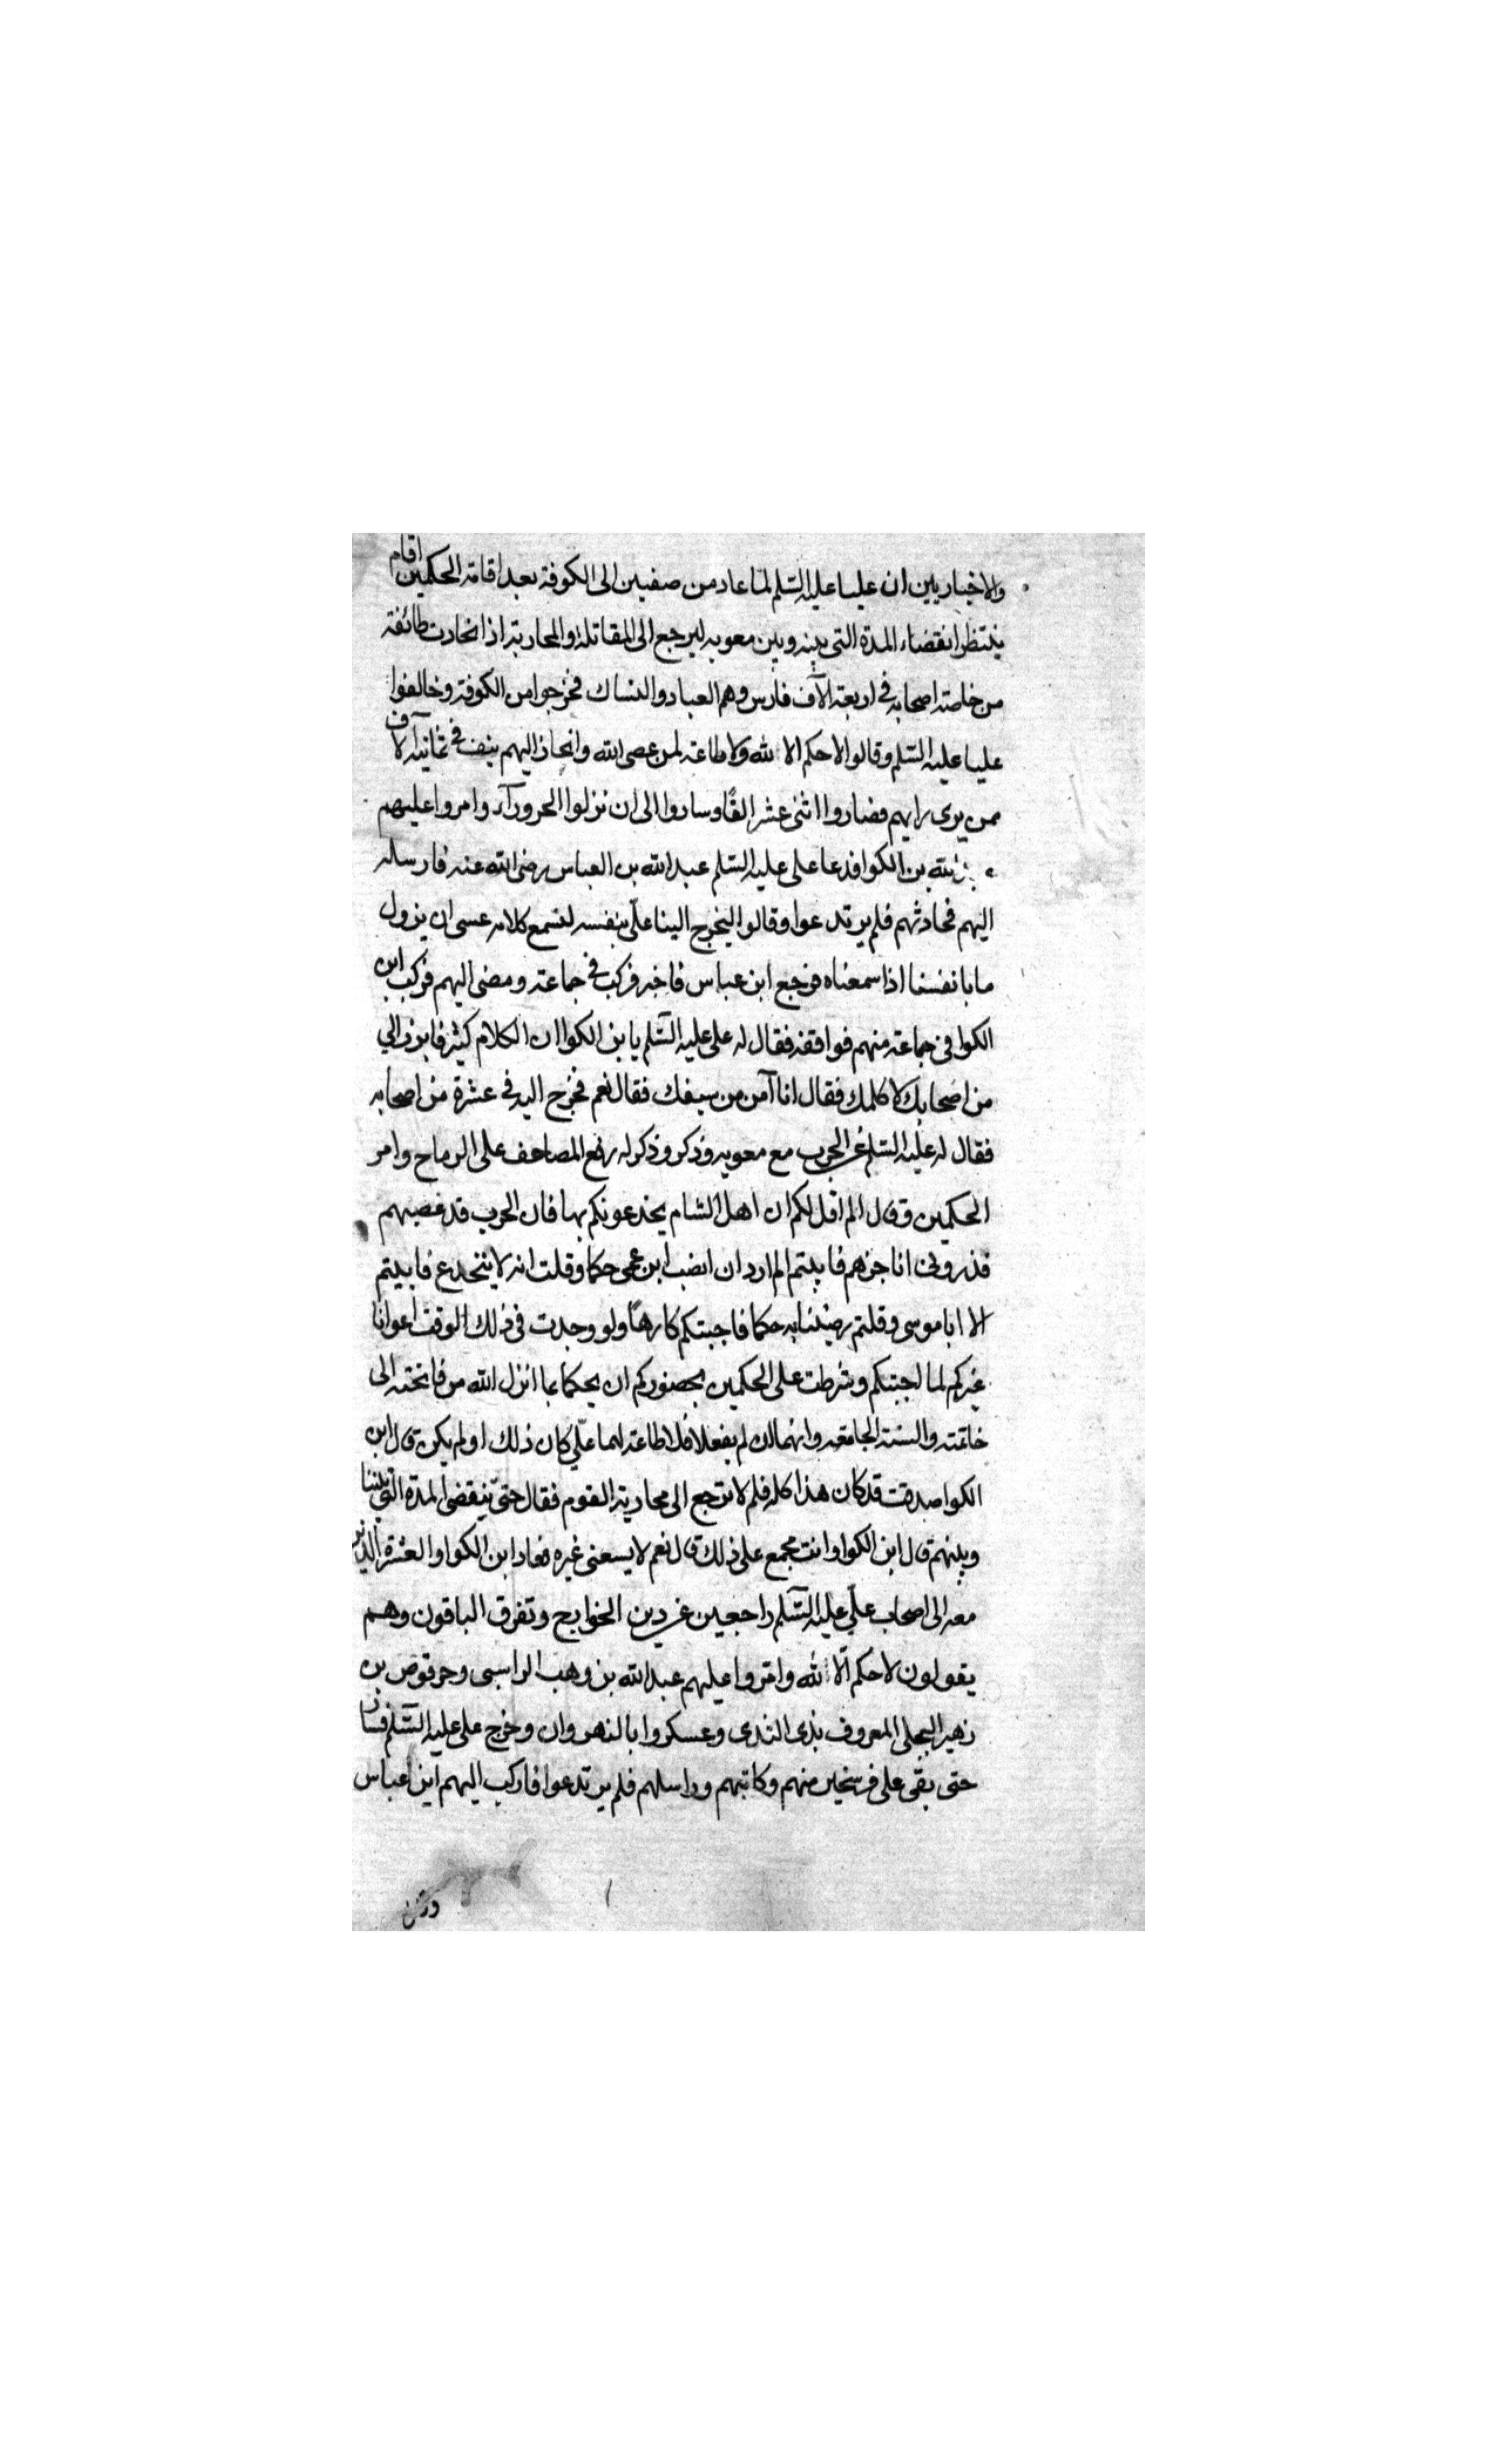 والاخباريين ان عليا عليه السّلم لمّا عاد من صفين الى الكوفة بعد اقامة الحكمين اقام
ينتظر انقضاء المدة التى بينه وبين معويه ليرجع الى المقاتلة والمحاربة اذ انحازت طائفة
من خاصة اصحابه فى اربعة الآف فارس وهم العباد والنساك فخرجوا من الكوفة وخالفوا
عليا عليه السّلم وقالوا لا حكم الا لله ولا طاعة لمن عصى الله وانحاز اليهم نيف فى ثمانية الآف
ممن يرى رايهم فصاروا اثنى عشر الفًا وساروا الى ان نزلوا الحرورآء وامروا عليهم
بن الكوا فدعا على عليه السّلم عبد الله بن العباس رضى الله عنه فارسله
اليهم فحادثهم فلم يرتدعوا وقالوا ليخرج الينا علىّ بنفسه لنسمع كلامه عسى ان يزول
ما بانفسنا اذا سمعناه فرجع ابن عباس فاخبره فركب فى جماعة ومضى اليهم فركب ابن
الكوا فى جماعة منهم فواقفه فقال له على عليه السّلم يا بن الكوا ان الكلام كثير فابرز الي
من اصحابك لاكلمك فقال انا آمن من سيفك فقال نعم فخرج اليه فى عشرة من اصحابه
فقال له عليه السّلم عن الحرب مع معويه وذكر وذكر له رفع المصاحف على الرماح وامر
الحكمين وقال الم اقل لكم ان اهل الشام يخدعونكم بها فان الحرب قد عضبهم
فذرونى اناجزهم فابيتم الم ارد ان انصب ابن عمى حكما وقلت انه لا ينخدع فابيتم
الا ابا موسى وقلتم رضينا به حكما فاجبتكم كارهًا ولو وجدت فى ذلك الوقت اعوانا
غيركم لما اجبتكم وشرطت على الحكمين بحضوركم ان يحكما بما انزل الله من فاتحته الى
خاتمته والسنة الجامعه وانهما ان لم يفعلا فلا طاعة لهما علىّ كان ذلك او لم يكن قال ابن
الكوا صدقت قد كان هذا كله فلم لا نرجع الى محاربة القوم فقال حتىّ ينقضى المدة التى بيننا
وبينهم قال ابن الكوا وانت مجمع على ذلك قال نعم لا يسعنى غيره فعاد ابن الكوا والعشرة الذين
معه الى اصحاب علىّ عليه السّلم راجعين عن دين الخوارج وتفرق الباقون وهم
يقولون لا حكم الّا لله وامّروا عليهم عبد الله بن وهب الراسبى وحرقوص بن
زهير البجلى المعروف بذى الثدى وعسكروا بالنهروان وخرج على عليه السّلم فسار
حتى بقى على فرسخين منهم وكاتبهم وراسلهم فلم يرتدعوا فاركب اليهم ابن عباس